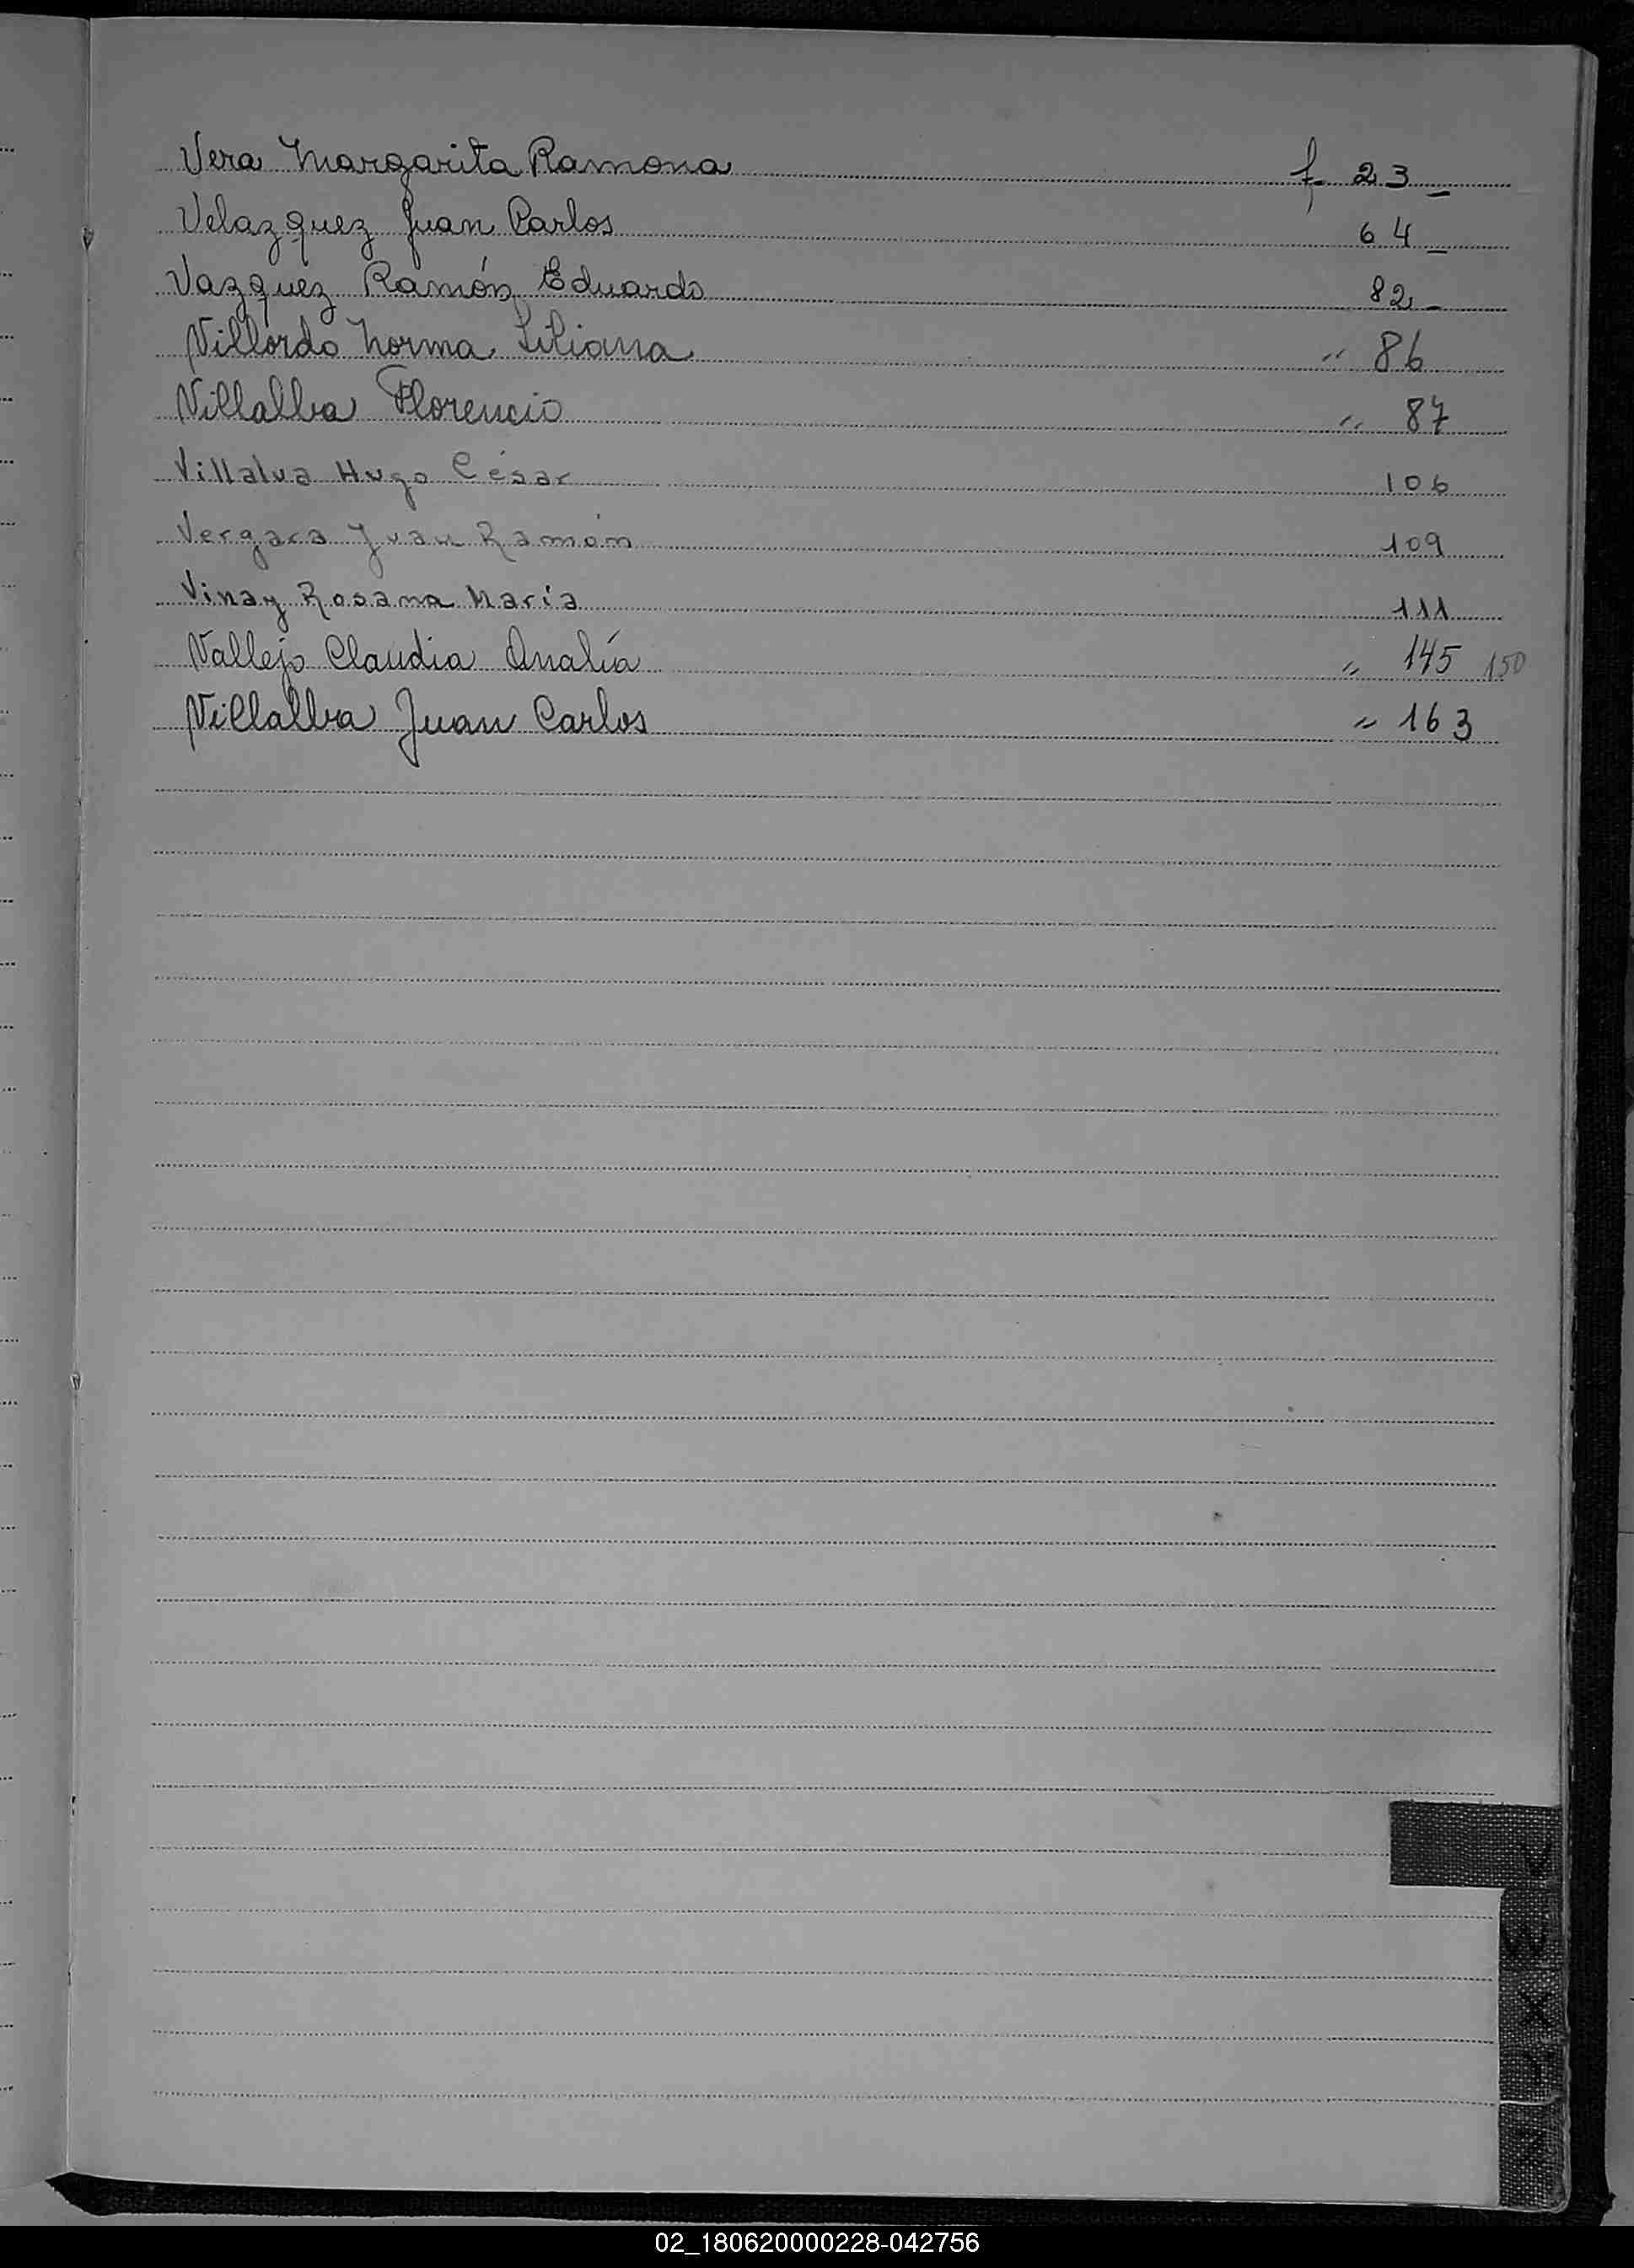 Vera Margarita Ramona f 23_
Velazquez Juan Carlos 64_
Vazquez Ramón Eduardo 82_
Villordo Norma Liliana " 86
Villalba Florencio " 87
Villalva Hugo César 106
Vergara Juan Ramón 109
Vinay Rosana María 111
Vallejo Claudia Analía " 145 150
Villalba Juan Carlos " 163
V
W
X
Y
Z
02_180620000228-042756